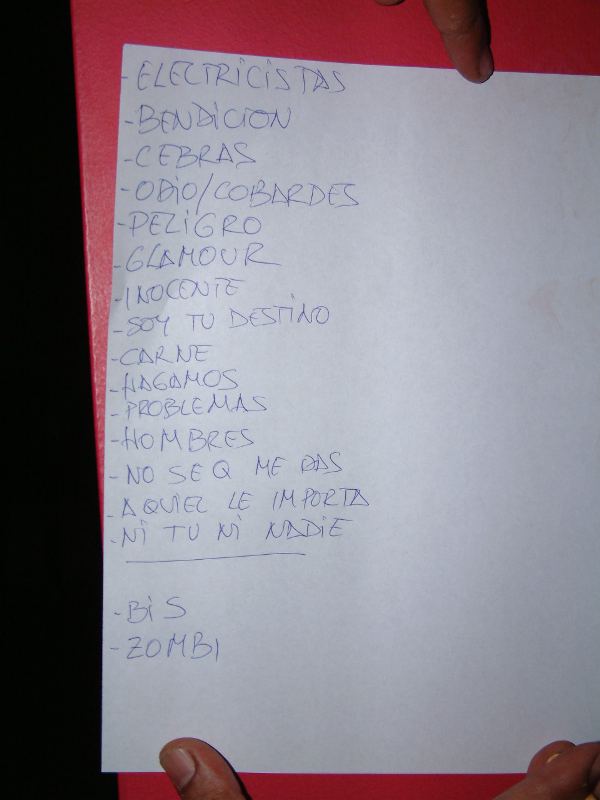 - ELECTRICISTAS
- BENDICION
- CEBRAS
- ODIO/COBARDES
- PELIGRO
- GLAMOUR
- INOCENTE
- SOY TU DESTINO
- CARNE
- HAGAMOS
- PROBLEMAS
- HOMBRES
- NO SE Q ME DAS
- A QUIEL LE IMPORTA
- NI TU NI NADIE
- BIS
- ZOMBI